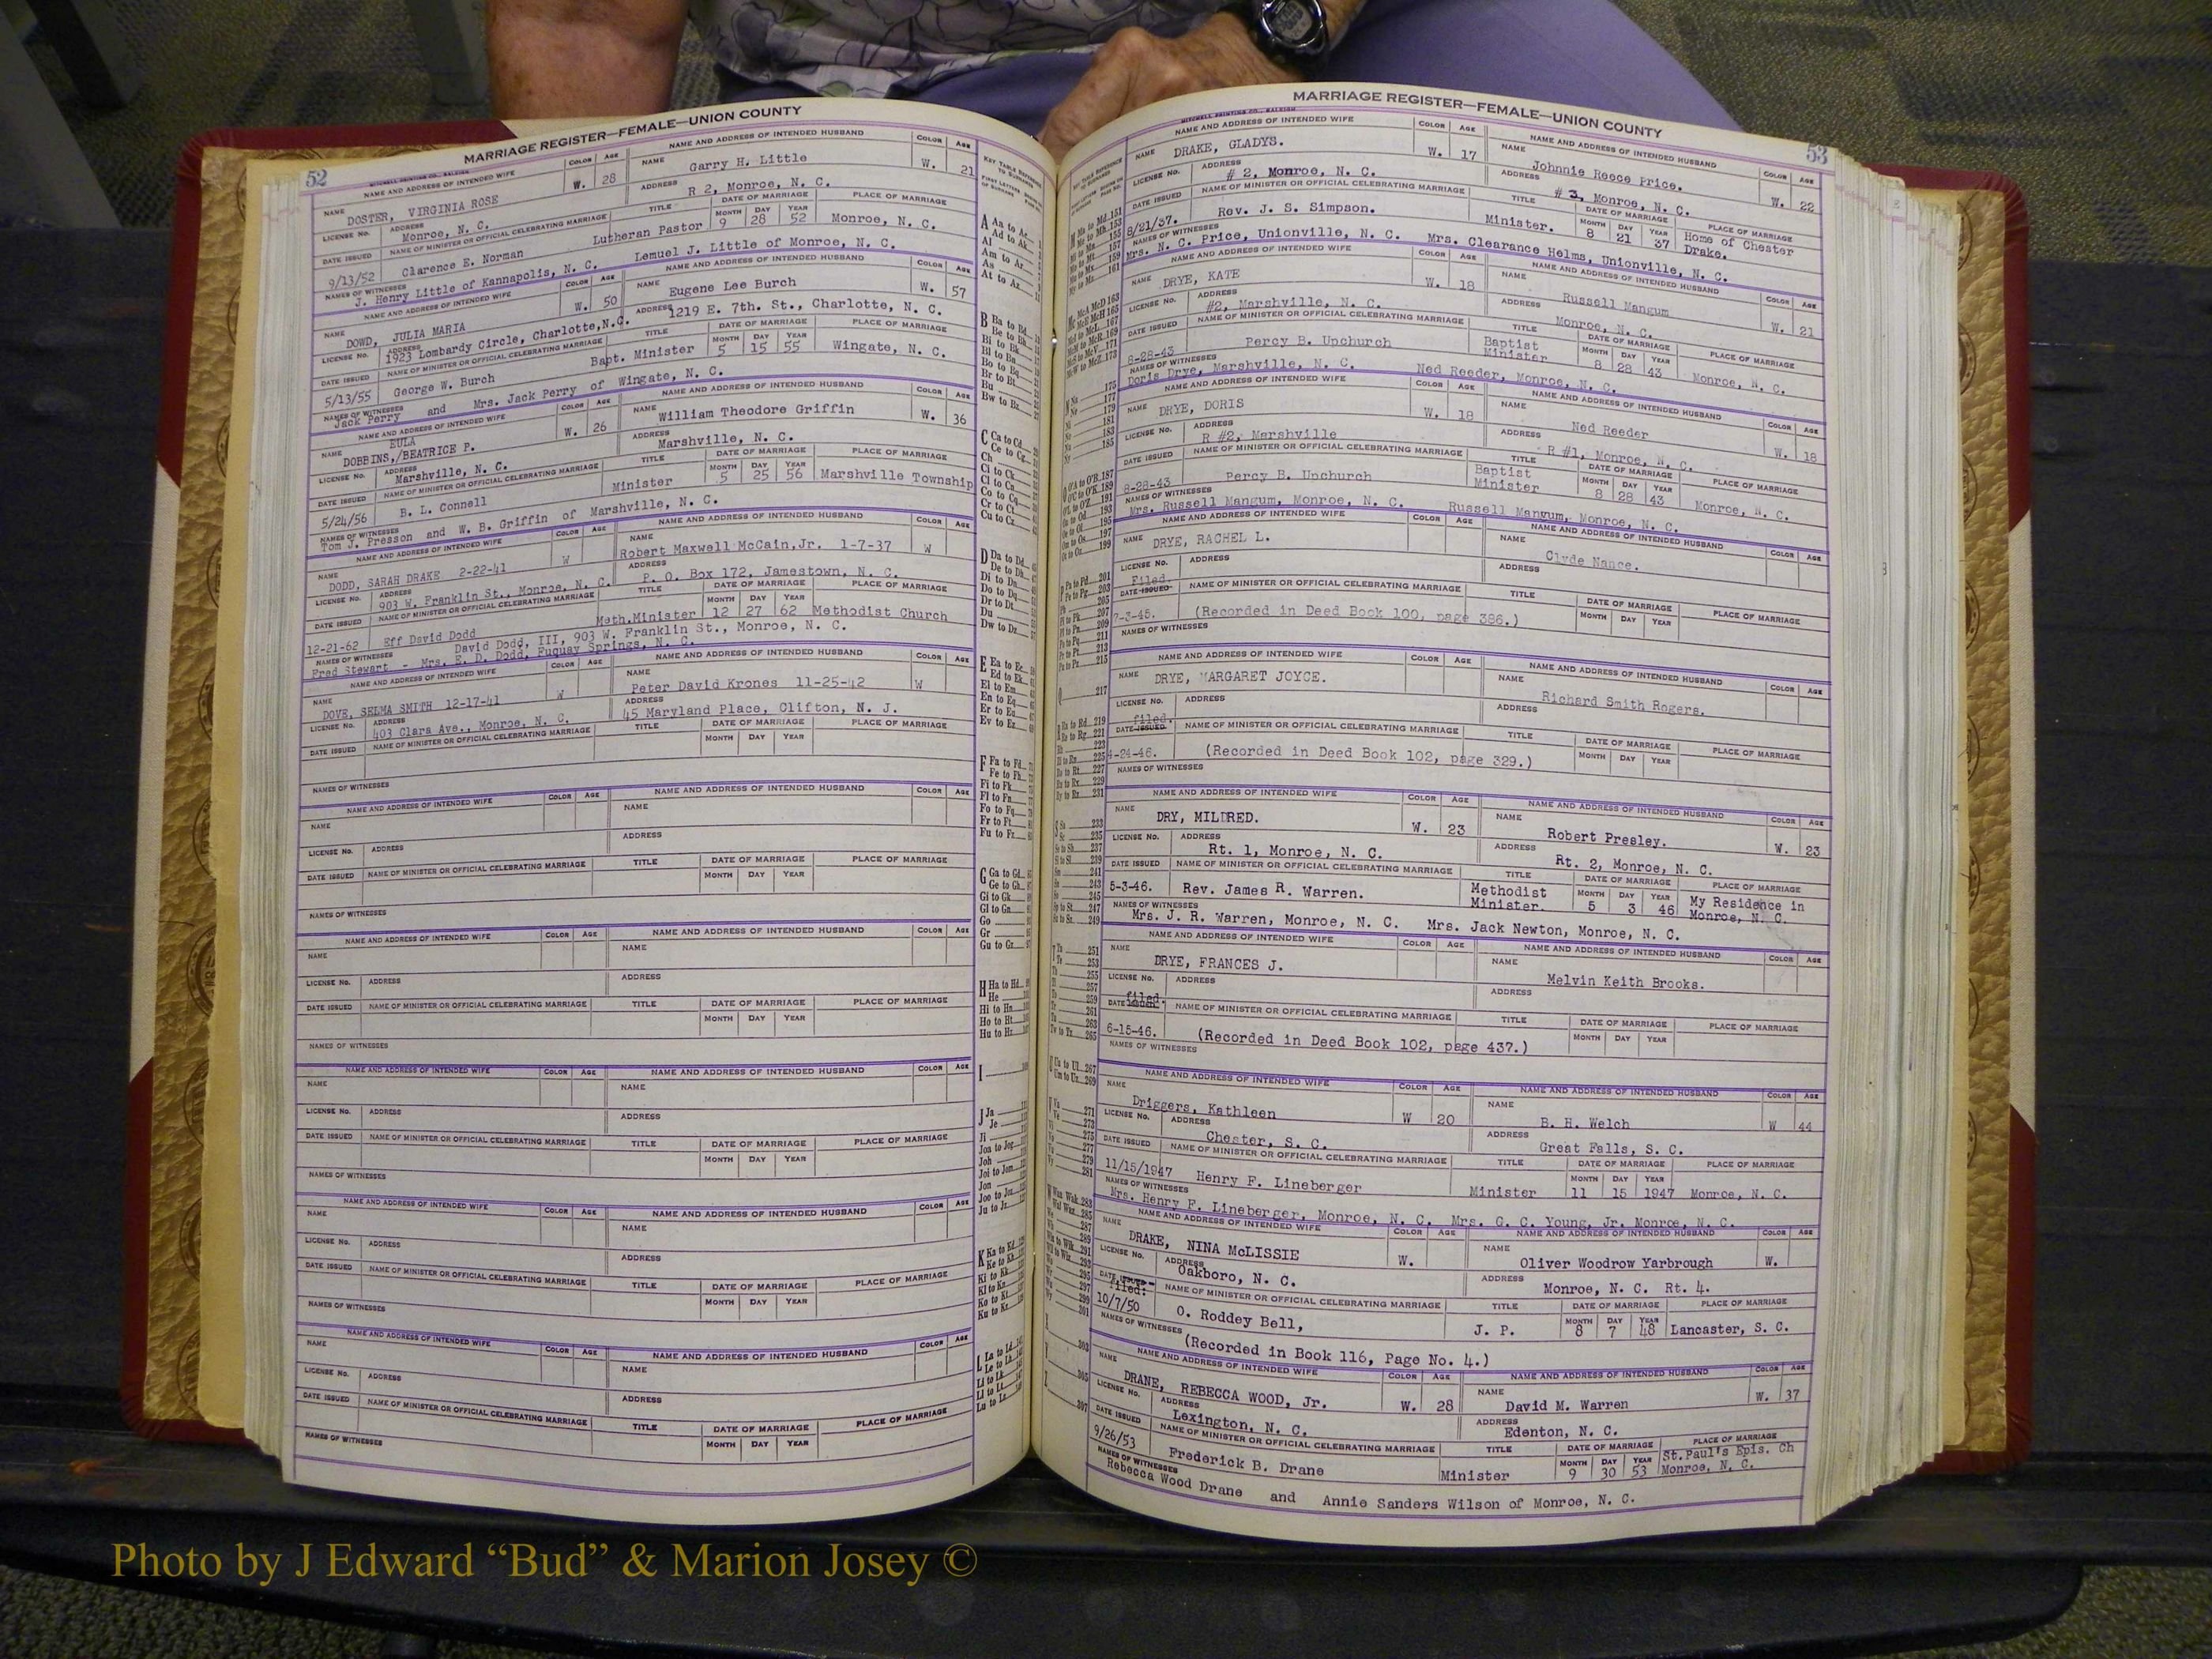 MARRIAGE REGISTER—FEMALE—UNION COUNTY
52
MITCHELL PRINTING CO., RALEIGH
NAME AND ADDRESS OF INTENDED WIFE COLOR AGE NAME AND ADDRESS OF INTENDED HUSBAND COLOR AGE
NAME DOSTER, VIRGINIA ROSE W. 28 NAME Garry H. Little W. 21
LICENSE No. ADDRESS Monroe, N. C. ADDRESS R 2, Monroe, N. C.
DATE ISSUED NAME OF MINISTER OR OFFICIAL CELEBRATING MARRIAGE TITLE DATE OF MARRIAGE PLACE OF MARRIAGE
MONTH DAY YEAR
9/13/52 Clarence E. Norman Lutheran Pastor 9 28 52 Monroe, N. C.
NAMES OF WITNESSES
J. Henry Little of Kannapolis, N. C. Lemuel J. Little of Monroe, N. C.
NAME AND ADDRESS OF INTENDED WIFE COLOR AGE NAME AND ADDRESS OF INTENDED HUSBAND COLOR AGE
NAME DOWD, JULIA MARIA W. 50 NAME Eugene Lee Burch W. 57
LICENSE No. ADDRESS 1923 Lombardy Circle, Charlotte,N.C. ADDRESS 1219 E. 7th. St., Charlotte, N. C.
DATE ISSUED NAME OF MINISTER OR OFFICIAL CELEBRATING MARRIAGE TITLE DATE OF MARRIAGE PLACE OF MARRIAGE
MONTH DAY YEAR
5/13/55 George W. Burch Bapt. Minister 5 15 55 Wingate, N. C.
NAMES OF WITNESSES
Jack Perry and Mrs. Jack Perry of Wingate, N. C.
NAME AND ADDRESS OF INTENDED WIFE COLOR AGE NAME AND ADDRESS OF INTENDED HUSBAND COLOR AGE
EULA
NAME DOBBINS,/BEATRICE P. W. 26 NAME William Theodore Griffin W. 36
LICENSE No. ADDRESS Marshville, N. C. ADDRESS Marshville, N. C.
DATE ISSUED NAME OF MINISTER OR OFFICIAL CELEBRATING MARRIAGE TITLE DATE OF MARRIAGE PLACE OF MARRIAGE
MONTH DAY YEAR
5/24/56 B. L. Connell Minister 5 25 56 Marshville Township
NAMES OF WITNESSES
Tom J. Presson and W. B. Griffin of Marshville, N. C.
NAME AND ADDRESS OF INTENDED WIFE COLOR AGE NAME AND ADDRESS OF INTENDED HUSBAND COLOR AGE
NAME DODD, SARAH DRAKE 2-22-41 W NAME Robert Maxwell McCain,Jr. 1-7-37 W
LICENSE No. ADDRESS 903 W. Franklin St., Monroe, N. C. ADDRESS P. O. Box 172, Jamestown, N. C.
DATE ISSUED NAME OF MINISTER OR OFFICIAL CELEBRATING MARRIAGE TITLE DATE OF MARRIAGE PLACE OF MARRIAGE
MONTH DAY YEAR
12-21-62 Eff David Dodd Meth.Minister 12 27 62 Methodist Church
NAMES OF WITNESSES David Dodd, III, 903 W. Franklin St., Monroe, N. C.
Fred Stewart - Mrs. E. D. Dodd, Fuquay Springs, N. C.
NAME AND ADDRESS OF INTENDED WIFE COLOR AGE NAME AND ADDRESS OF INTENDED HUSBAND COLOR AGE
NAME DOVE, SELMA SMITH 12-17-41 W NAME Peter David Krones 11-25-42 W
LICENSE No. ADDRESS 403 Clara Ave., Monroe, N. C. ADDRESS 45 Maryland Place, Clifton, N. J.
DATE ISSUED NAME OF MINISTER OR OFFICIAL CELEBRATING MARRIAGE TITLE DATE OF MARRIAGE PLACE OF MARRIAGE
MONTH DAY YEAR
NAMES OF WITNESSES
NAME AND ADDRESS OF INTENDED WIFE COLOR AGE NAME AND ADDRESS OF INTENDED HUSBAND COLOR AGE
NAME NAME
LICENSE No. ADDRESS ADDRESS
DATE ISSUED NAME OF MINISTER OR OFFICIAL CELEBRATING MARRIAGE TITLE DATE OF MARRIAGE PLACE OF MARRIAGE
MONTH DAY YEAR
NAMES OF WITNESSES
NAME AND ADDRESS OF INTENDED WIFE COLOR AGE NAME AND ADDRESS OF INTENDED HUSBAND COLOR AGE
NAME NAME
LICENSE No. ADDRESS ADDRESS
DATE ISSUED NAME OF MINISTER OR OFFICIAL CELEBRATING MARRIAGE TITLE DATE OF MARRIAGE PLACE OF MARRIAGE
MONTH DAY YEAR
NAMES OF WITNESSES
NAME AND ADDRESS OF INTENDED WIFE COLOR AGE NAME AND ADDRESS OF INTENDED HUSBAND COLOR AGE
NAME NAME
LICENSE No. ADDRESS ADDRESS
DATE ISSUED NAME OF MINISTER OR OFFICIAL CELEBRATING MARRIAGE TITLE DATE OF MARRIAGE PLACE OF MARRIAGE
MONTH DAY YEAR
NAMES OF WITNESSES
NAME AND ADDRESS OF INTENDED WIFE COLOR AGE NAME AND ADDRESS OF INTENDED HUSBAND COLOR AGE
NAME NAME
LICENSE No. ADDRESS ADDRESS
DATE ISSUED NAME OF MINISTER OR OFFICIAL CELEBRATING MARRIAGE TITLE DATE OF MARRIAGE PLACE OF MARRIAGE
MONTH DAY YEAR
NAMES OF WITNESSES
NAME AND ADDRESS OF INTENDED WIFE COLOR AGE NAME AND ADDRESS OF INTENDED HUSBAND COLOR AGE
NAME NAME
LICENSE No. ADDRESS ADDRESS
DATE ISSUED NAME OF MINISTER OR OFFICIAL CELEBRATING MARRIAGE TITLE DATE OF MARRIAGE PLACE OF MARRIAGE
MONTH DAY YEAR
NAMES OF WITNESSES
MARRIAGE REGISTER—FEMALE—UNION COUNTY
53
MITCHELL PRINTING CO., RALEIGH
NAME AND ADDRESS OF INTENDED WIFE COLOR AGE NAME AND ADDRESS OF INTENDED HUSBAND COLOR AGE
NAME DRAKE, GLADYS. W. 17 NAME Johnnie Reece Price. W. 22
LICENSE No. ADDRESS # 2, Monroe, N. C. ADDRESS # 3, Monroe, N. C.
DATE ISSUED NAME OF MINISTER OR OFFICIAL CELEBRATING MARRIAGE TITLE DATE OF MARRIAGE PLACE OF MARRIAGE
MONTH DAY YEAR
8/21/37. Rev. J. S. Simpson. Minister. 8 21 37 Home of Chester Drake.
NAMES OF WITNESSES
Mrs. N. C. Price, Unionville, N. C. Mrs. Clearance Helms, Unionville, N. C.
NAME AND ADDRESS OF INTENDED WIFE COLOR AGE NAME AND ADDRESS OF INTENDED HUSBAND COLOR AGE
NAME DRYE, KATE W. 18 Russell Mangum W. 21
LICENSE No. ADDRESS #2, Marshville, N. C. ADDRESS Monroe, N. C.
DATE ISSUED NAME OF MINISTER OR OFFICIAL CELEBRATING MARRIAGE TITLE DATE OF MARRIAGE PLACE OF MARRIAGE
MONTH DAY YEAR
8-28-43 Percy B. Upchurch Baptist Minister 8 28 43 Monroe, N. C.
NAMES OF WITNESSES
Doris Drye, Marshville, N. C. Ned Reeder, Monroe, N. C.
NAME AND ADDRESS OF INTENDED WIFE COLOR AGE NAME AND ADDRESS OF INTENDED HUSBAND COLOR AGE
NAME DRYE, DORIS W. 18 NAME Ned Reeder W. 18
LICENSE No. ADDRESS R #2, Marshville ADDRESS R #1, Monroe, N. C.
DATE ISSUED NAME OF MINISTER OR OFFICIAL CELEBRATING MARRIAGE TITLE DATE OF MARRIAGE PLACE OF MARRIAGE
MONTH DAY YEAR
8-28-43 Percy B. Upchurch Baptist Minister 8 28 43 Monroe, N. C.
NAMES OF WITNESSES
Mrs. Russell Mangum, Monroe, N. C. Russell Mangum, Monroe, N. C.
NAME AND ADDRESS OF INTENDED WIFE COLOR AGE NAME AND ADDRESS OF INTENDED HUSBAND COLOR AGE
NAME DRYE, RACHEL L. NAME Clyde Nance.
LICENSE No. ADDRESS ADDRESS
Filed.
DATE ISSUED NAME OF MINISTER OR OFFICIAL CELEBRATING MARRIAGE TITLE DATE OF MARRIAGE PLACE OF MARRIAGE
MONTH DAY YEAR
7-3-45. (Recorded in Deed Book 100, page 386.)
NAMES OF WITNESSES
NAME AND ADDRESS OF INTENDED WIFE COLOR AGE NAME AND ADDRESS OF INTENDED HUSBAND COLOR AGE
NAME DRYE, MARGARET JOYCE. NAME Richard Smith Rogers.
LICENSE No. ADDRESS ADDRESS
filed.
DATE ISSUED NAME OF MINISTER OR OFFICIAL CELEBRATING MARRIAGE TITLE DATE OF MARRIAGE PLACE OF MARRIAGE
MONTH DAY YEAR
4-24-46. (Recorded in Deed Book 102, page 329.)
NAMES OF WITNESSES
NAME AND ADDRESS OF INTENDED WIFE COLOR AGE NAME AND ADDRESS OF INTENDED HUSBAND COLOR AGE
NAME DRY, MILDRED. W. 23 NAME Robert Presley. W. 23
LICENSE No. ADDRESS Rt. 1, Monroe, N. C. ADDRESS Rt. 2, Monroe, N. C.
DATE ISSUED NAME OF MINISTER OR OFFICIAL CELEBRATING MARRIAGE TITLE DATE OF MARRIAGE PLACE OF MARRIAGE
MONTH DAY YEAR
5-3-46. Rev. James R. Warren. Methodist Minister. 5 3 46 My Residence in Monroe, N. C.
NAMES OF WITNESSES
Mrs. J. R. Warren, Monroe, N. C. Mrs. Jack Newton, Monroe, N. C.
NAME AND ADDRESS OF INTENDED WIFE COLOR AGE NAME AND ADDRESS OF INTENDED HUSBAND COLOR AGE
NAME DRYE, FRANCES J. NAME Melvin Keith Brooks.
LICENSE No. ADDRESS ADDRESS
filed.
DATE ISSUED NAME OF MINISTER OR OFFICIAL CELEBRATING MARRIAGE TITLE DATE OF MARRIAGE PLACE OF MARRIAGE
MONTH DAY YEAR
6-15-46. (Recorded in Deed Book 102, page 437.)
NAMES OF WITNESSES
NAME AND ADDRESS OF INTENDED WIFE COLOR AGE NAME AND ADDRESS OF INTENDED HUSBAND COLOR AGE
NAME Driggers, Kathleen W 20 NAME B. H. Welch W 44
LICENSE No. ADDRESS Chester, S. C. ADDRESS Great Falls, S. C.
DATE ISSUED NAME OF MINISTER OR OFFICIAL CELEBRATING MARRIAGE TITLE DATE OF MARRIAGE PLACE OF MARRIAGE
MONTH DAY YEAR
11/15/1947 Henry F. Lineberger Minister 11 15 1947 Monroe, N. C.
NAMES OF WITNESSES
Mrs. Henry F. Lineberger, Monroe, N. C. Mrs. G. C. Young, Jr. Monroe, N. C.
NAME AND ADDRESS OF INTENDED WIFE COLOR AGE NAME AND ADDRESS OF INTENDED HUSBAND COLOR AGE
NAME DRAKE, NINA McLISSIE W. NAME Oliver Woodrow Yarbrough W.
LICENSE No. ADDRESS Oakboro, N. C. ADDRESS Monroe, N. C. Rt. 4.
DATE ISSUED filed: NAME OF MINISTER OR OFFICIAL CELEBRATING MARRIAGE TITLE DATE OF MARRIAGE PLACE OF MARRIAGE
MONTH DAY YEAR
10/7/50 O. Roddey Bell, J. P. 8 7 48 Lancaster, S. C.
NAMES OF WITNESSES (Recorded in Book 116, Page No. 4.)
NAME AND ADDRESS OF INTENDED WIFE COLOR AGE NAME AND ADDRESS OF INTENDED HUSBAND COLOR AGE
NAME DRANE, REBECCA WOOD, Jr. W. 28 NAME David M. Warren W. 37
LICENSE No. ADDRESS Lexington, N. C. ADDRESS Edenton, N. C.
DATE ISSUED NAME OF MINISTER OR OFFICIAL CELEBRATING MARRIAGE TITLE DATE OF MARRIAGE PLACE OF MARRIAGE
MONTH DAY YEAR
9/26/53 Frederick B. Drane Minister 9 30 53 St.Paul's Epis. Ch Monroe, N. C.
NAMES OF WITNESSES
Rebecca Wood Drane and Annie Sanders Wilson of Monroe, N. C.
Photo by J Edward “Bud” & Marion Josey ©